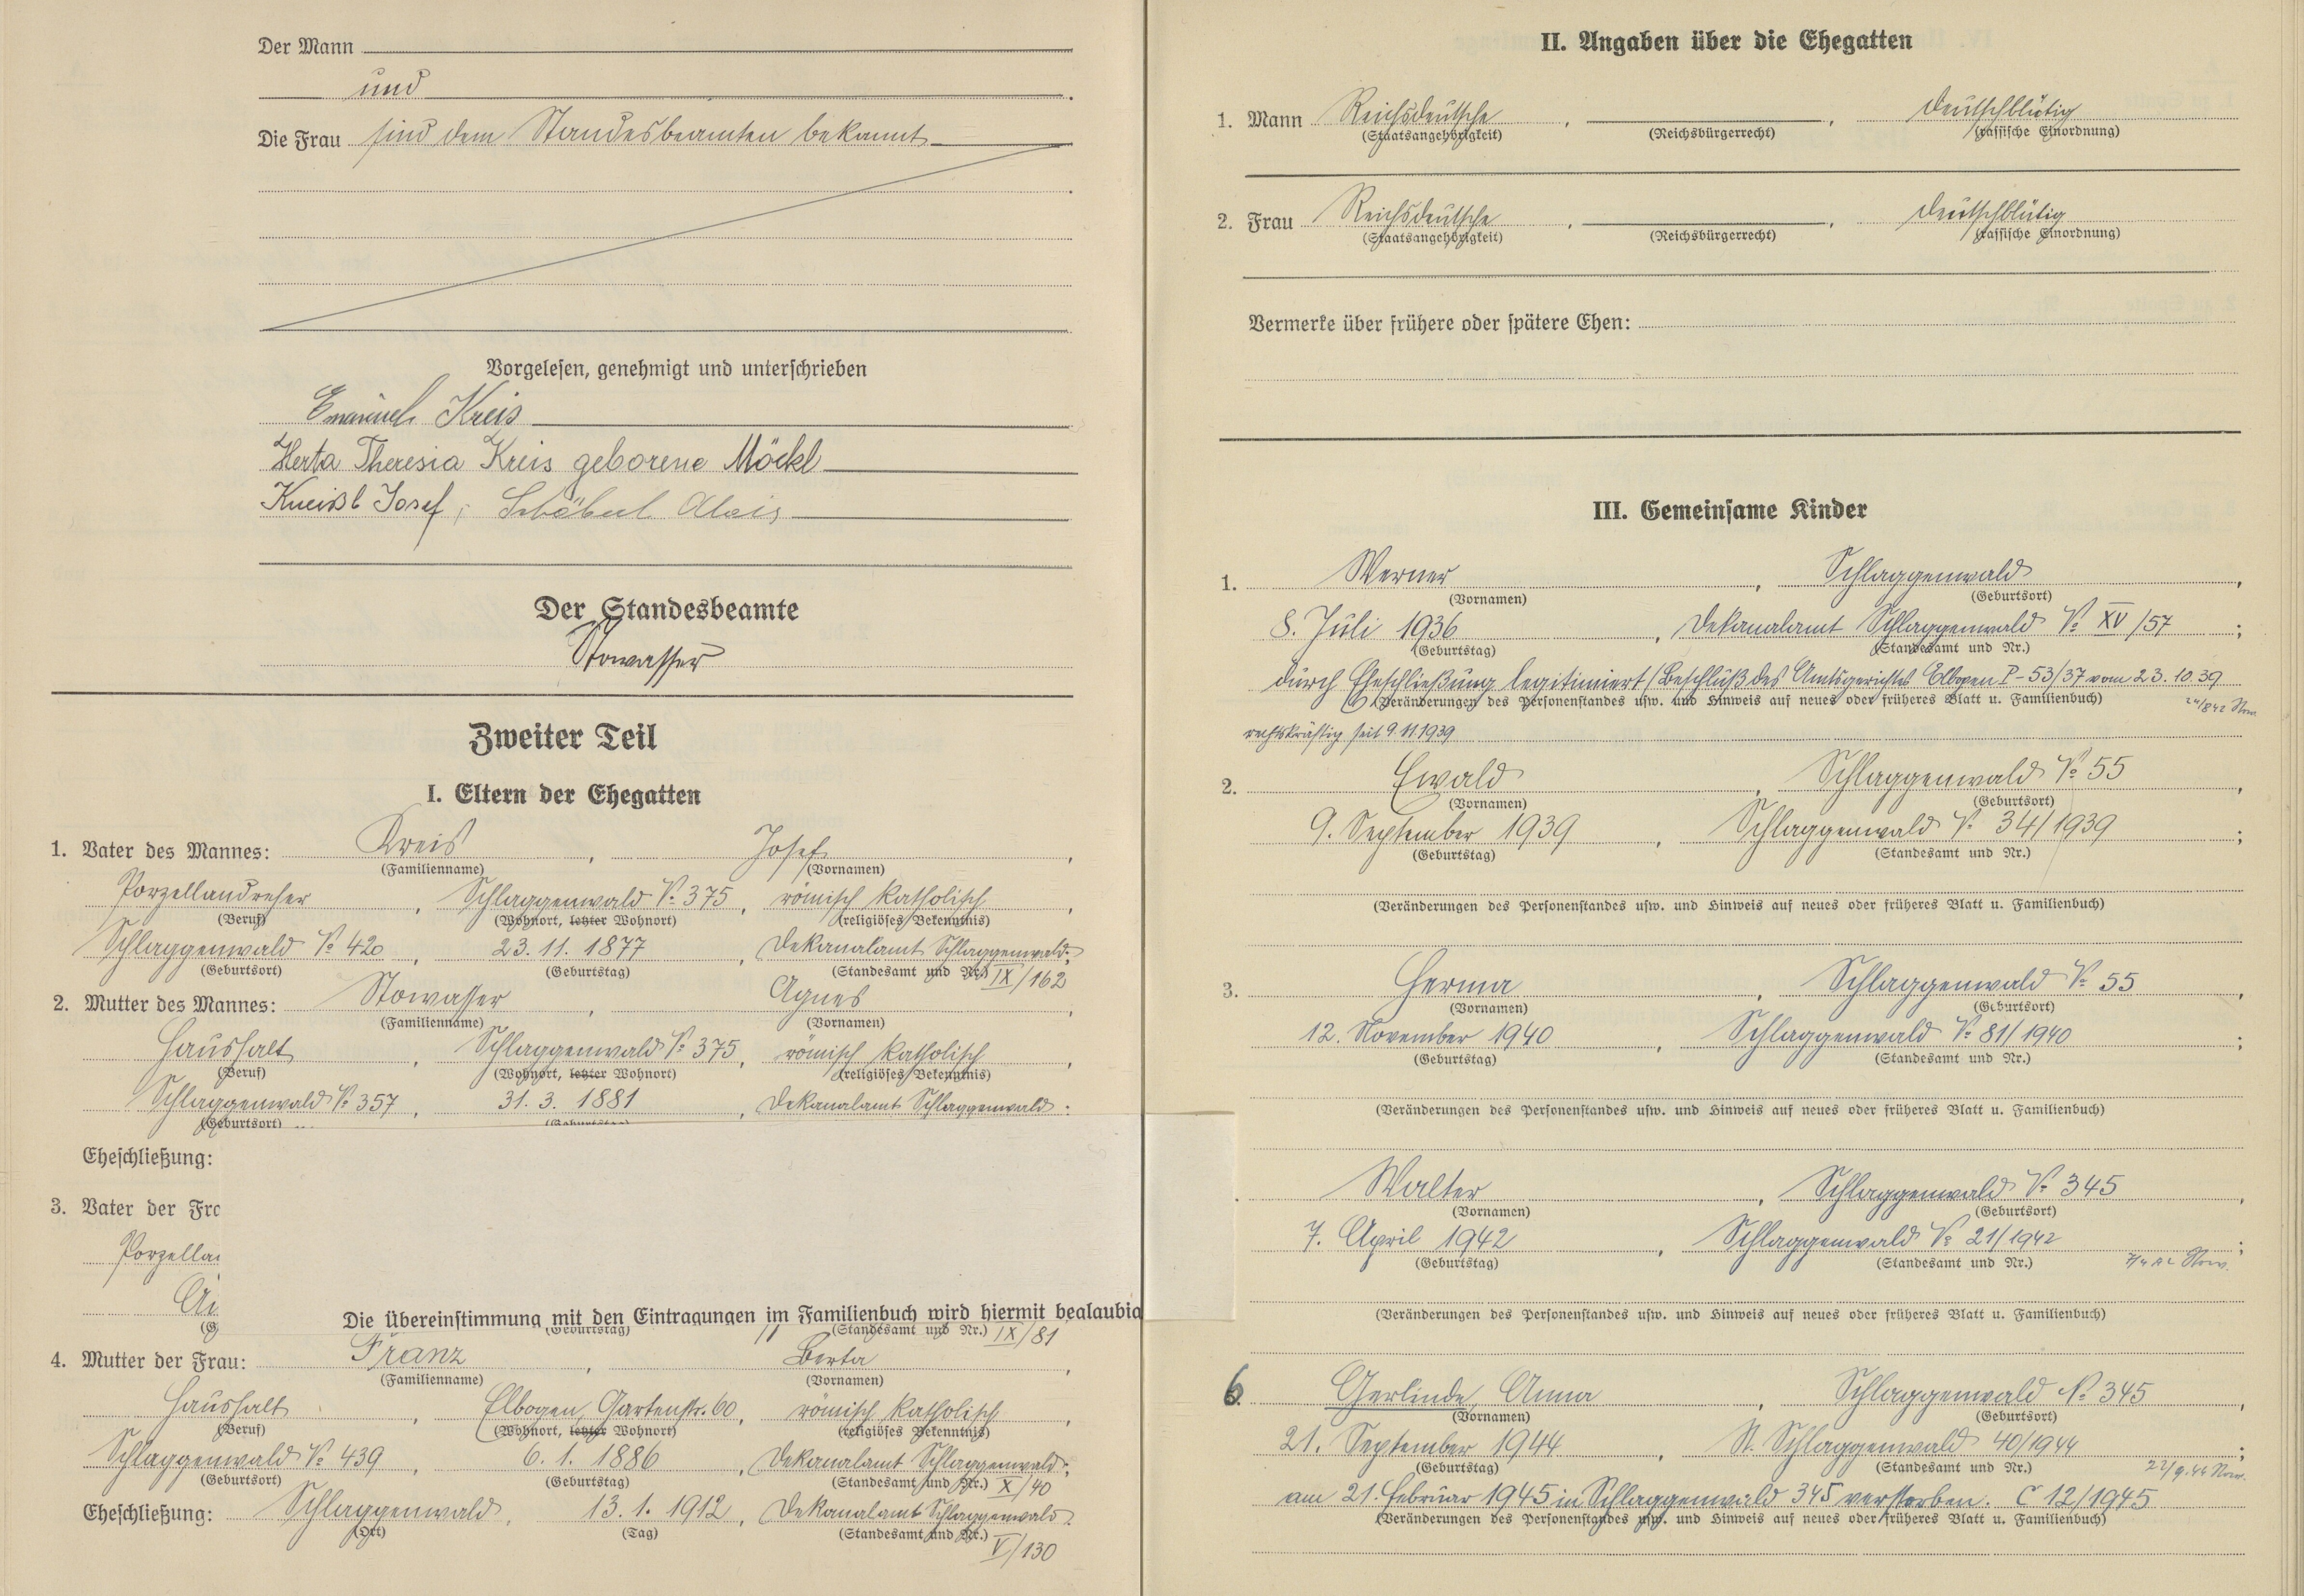 Der Mann
und
Die Frau sind dem Standesbeamten bekannt
Vorgelesen, genehmigt und unterschrieben
Emanuel Kreis
Herta Theresia Kreis geborene Möckl
Kneißl Josef, Alois
Der Standesbeamte
Stowasser
Zweiter Teil
I. Eltern der Ehegatten
1. Vater des Mannes: Kreis, Josef,
(Familienname) (Vornamen)
Porzellandreher, Schlaggenwald № 375, römisch katholisch,
(Beruf) (Wohnort, letzter Wohnort) (religiöses Bekenntnis)
Schlaggenwald № 420, 23. 11. 1877, Dekanalamt Schlaggenwald;
(Geburtsort) (Geburtstag) (Standesamt und Nr.) IX/162
2. Mutter des Mannes: Stowasser, Agnes,
(Familienname) (Vornamen)
Haushalt, Schlaggenwald № 375, römisch katholisch,
(Beruf) (Wohnort, letzter Wohnort) (religiöses Bekenntnis)
Schlaggenwald № 357, 31. 3. 1881, Dekanalamt Schlaggenwald.
(Geburtsort) (Geburtstag)
Eheschließung:
3. Vater der Fra
Porzellan
Die Übereinstimmung mit den Eintragungen im Familienbuch wird hiermit beglaubig
(Geburtstag) (Standesamt und Nr.) IX/81
4. Mutter der Frau: Franz, Berta,
(Familienname) (Vornamen)
Haushalt, Elbogen, Gartenstr. 60, römisch katholisch,
(Beruf) (Wohnort, letzter Wohnort) (religiöses Bekenntnis)
Schlaggenwald № 439, 6. 1. 1886, Dekanalamt Schlaggenwald;
(Geburtsort) (Geburtstag) (Standesamt und Nr.) X/40
Eheschließung: Schlaggenwald, 13. 1. 1912, Dekanalamt Schlaggenwald.
(Ort) (Tag) (Standesamt und Nr.)
V/130
II. Angaben über die Ehegatten
1. Mann Reichsdeutsche, , deutschblütig
(Staatsangehörigkeit) (Reichsbürgerrecht) (rassische Einordnung)
2. Frau Reichsdeutsche, , deutschblütig
(Staatsangehörigkeit) (Reichsbürgerrecht) (rassische Einordnung)
Vermerke über frühere oder spätere Ehen:
III. Gemeinsame Kinder
1. Werner, Schlaggenwald,
(Vornamen) (Geburtsort)
8. Juli 1936, Dekanalamt Schlaggenwald № XV/57;
(Geburtstag) (Standesamt und Nr.)
durch Eheschließung legitimiert (Beschluß des Amtsgerichtes Elbogen P-53/37 vom 23. 10. 39
(Veränderungen des Personenstandes usw. und Hinweis auf neues oder früheres Blatt u. Familienbuch)
rechtskräftig seit 9. 11. 1939
2. Ewald, Schlaggenwald № 55,
(Vornamen) (Geburtsort)
9. September 1939, Schlaggenwald № 34/1939;
(Geburtstag) (Standesamt und Nr.)
(Veränderungen des Personenstandes usw. und Hinweis auf neues oder früheres Blatt u. Familienbuch)
3. Herma, Schlaggenwald № 55,
(Vornamen) (Geburtsort)
12. November 1940, Schlaggenwald № 81/1940;
(Geburtstag) (Standesamt und Nr.)
(Veränderungen des Personenstandes usw. und Hinweis auf neues oder früheres Blatt u. Familienbuch)
Walter, Schlaggenwald № 345,
(Vornamen) (Geburtsort)
7. April 1942, Schlaggenwald № 21/1942;
(Geburtstag) (Standesamt und Nr.)
(Veränderungen des Personenstandes usw. und Hinweis auf neues oder früheres Blatt u. Familienbuch)
6. Gerlinde, Anna, Schlaggenwald № 345,
(Vornamen) (Geburtsort)
21. September 1944, St. Schlaggenwald 40/1944;
(Geburtstag) (Standesamt und Nr.)
am 21. Februar 1945 in Schlaggenwald 345 verstorben. C 12/1945
(Veränderungen des Personenstandes usw. und Hinweis auf neues oder früheres Blatt u. Familienbuch)